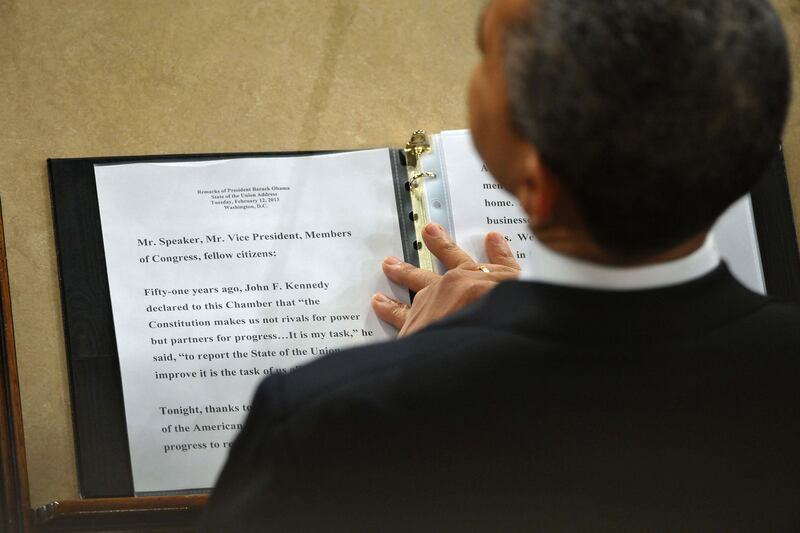 Remarks of President Barack Obama
State of the Union Address
Tuesday, February 12, 2013
Washington, D.C.
Mr. Speaker, Mr. Vice President, Members
of Congress, fellow citizens:
Fifty-one years ago, John F. Kennedy
declared to this Chamber that “the
Constitution makes us not rivals for power
but partners for progress…It is my task,” he
said, “to report the State of the Union
improve it is the task of us
Tonight, thanks to
of the American
progress to
men
home.
business
We
in